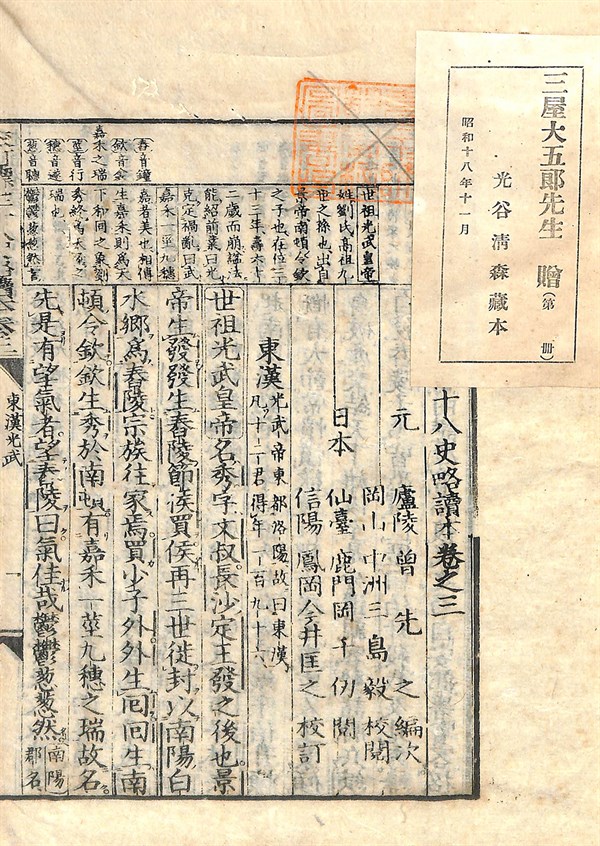 三屋大五郎先生 贈(第 冊)
光谷清森藏本
昭和十八年十一月
十八史略讀本卷之三
元 廬陵 曾 先 之 編次
岡山 中洲 三島 毅 校閲
日本 仙臺 鹿門 岡 千仭 閲
信陽 鳳岡 今井 匡之 校訂
東漢 光武帝東都洛陽故曰東漢
凡十二君得年一百九十六
世祖光武皇帝名秀字文叔長沙定王發之後也景
帝生發發生舂陵節侯買侯再三世徙封以南陽白
水郷爲舂陵宗族往家焉買少子外外生囘囘生南
頓令欽欽生秀於南頓有嘉禾一莖九穗之瑞故名
先是有望氣者望舂陵曰氣佳哉鬱鬱葱葱然
南陽
郡名
世祖光武皇帝
姓劉氏高祖九
世之孫也出自
景帝南頓令欽
之子也在位三
十三年壽六十
二歲而崩謚法
能紹前業曰光
克定禍亂曰武
嘉禾一莖九穗
嘉者美也相傳
生嘉禾則爲天
下和同之象刻
秀終爲太有之
瑞也
鬱鬱葱葱然言
舂音鐘
欽音
嘉禾之瑞
莖音行
穗音遂
葱音聰
東漢光武
一